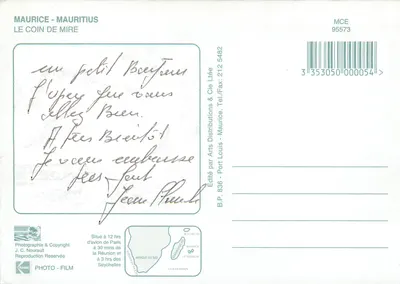 MAURICE - MAURITIUS
LE COIN DE MIRE
MCE
85573
3 353050 000054 >
un petit Bonjour
J'espère que vous
allez Bien.
A très Bientôt
Je vous embrasse
très fort
Jean
Edité par Arts Distributions & Cie Ltée
B.P. 838 - Port Louis - Maurice. Tel./Fax: 212 5482
Photographie & Copyright
J. C. Nourault
Reproduction Réservée
PHOTO - FILM
Situé à 12 hrs
d'avion de Paris
à 30 mins de
la Réunion et
à 3 hrs des
Seychelles